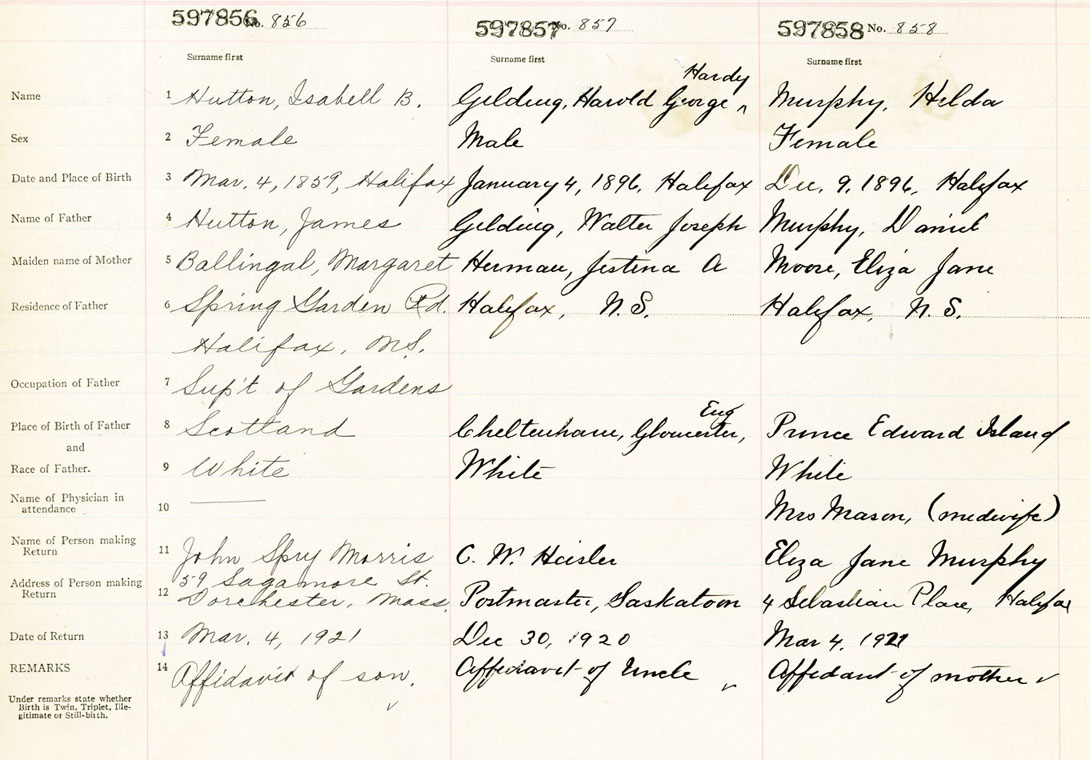 597856 No. 856
597857 No. 857
597858 No. 858
Surname first
Surname first
Surname first
Name 1 Hutton, Isabell B. Gelding, Harold George Hardy Murphy, Hilda
Sex 2 Female Male Female
Date and Place of Birth 3 Mar. 4, 1859, Halifax January 4, 1896, Halifax Dec. 9, 1896, Halifax
Name of Father 4 Hutton, James Gelding, Walter Joseph Murphy, Daniel
Maiden name of Mother 5 Ballingal, Margaret Herman, Jestina A Moore, Eliza Jane
Residence of Father 6 Spring Garden Rd. Halifax, N.S. Halifax, N.S.
Halifax, N.S.
Occupation of Father 7 Sup't of Gardens
Place of Birth of Father 8 Scotland Cheltenham, Gloucester, Eng Prince Edward Island
and
Race of Father. 9 White White White
Name of Physician in
attendance 10 Mrs Mason, (midwife)
Name of Person making
Return 11 John Spry Morris C. W. Heisler Eliza Jane Murphy
Address of Person making
Return 12 59 Sagamore St. Dorchester, Mass. Postmaster, Saskatoon 4 Sebastian Place, Halifax
Date of Return 13 Mar. 4, 1921 Dec 30, 1920 Mar 4, 1921
REMARKS 14 Affidavit of son. Affidavit of Uncle Affidavit of mother
Under remarks state whether
Birth is Twin, Triplet, Ille-
gitimate or Still-birth.